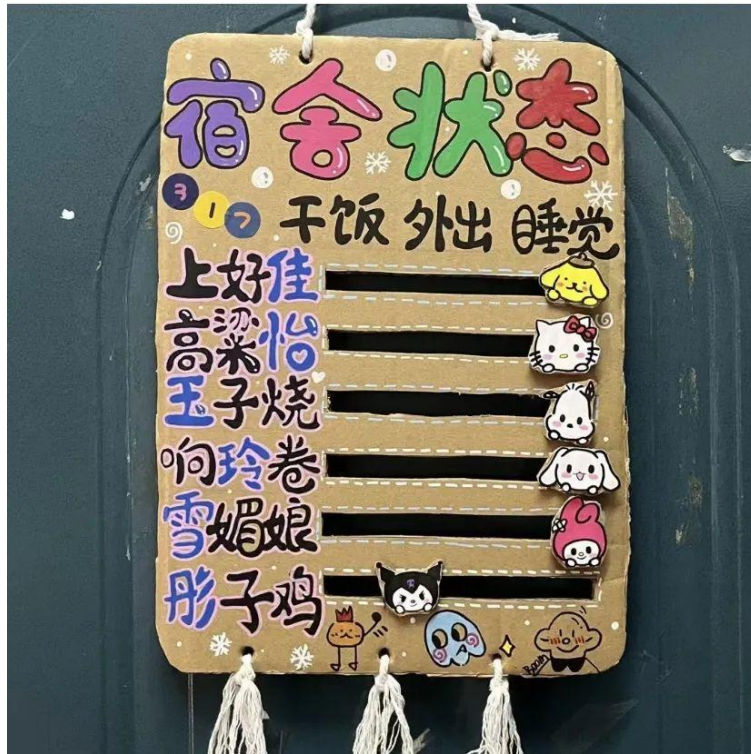 宿舍状态
317
干饭 外出 睡觉
上好佳
高粱怡
玉子烧
响玲卷
雪媚娘
彤子鸡
Boom